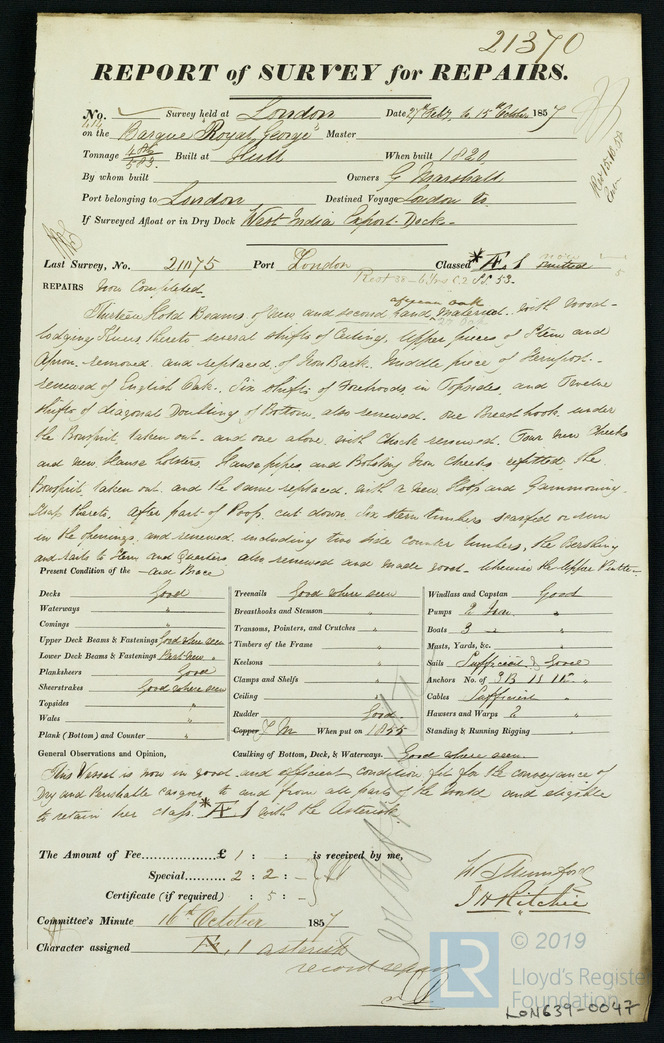 21370
REPORT of SURVEY for REPAIRS.
No. Survey held at London Date 27th Feby. to 15th October 1857
on the Barque "Royal George" Master
Tonnage 486 583 Built at Hull When built 1820
By whom built Owners G Marshall
Port belonging to London Destined Voyage London to
If Surveyed Afloat or in Dry Dock West India Export Dock
Last Survey, No. 21075 Port London Classed Æ. 1
REPAIRS Now Completed
Thirteen Hold Beams of new and second hand material with Wood-
lodging Knees thereto several shifts of Ceiling, Upper pieces of Stem and
Apron removed and replaced of Iron Bark. Middle piece of Sternpost
renewed of English Oak. Six shifts of Forehoods in Topsides and Twelve
shifts of diagonal Doubling of Bottom, also renewed. One Breasthook under
the Bowsprit, taken out and one above with Chock renewed. Four new Cheeks
and new Hawse bolsters, Hawse pipes, and Bobstay Iron Cheeks refitted the
Bowsprit, taken out and the same replaced with a new Hoop and Gammoning
Strap thereto, after part of Poop cut down Six stern timbers scarfed or run
in the openings and renewed including two side Counter timbers, the Berthing
and rails to Stern and Quarters also renewed and made good
Present Condition of the
Decks Good
Waterways "
Comings "
Upper Deck Beams & Fastenings Good where seen
Lower Deck Beams & Fastenings Part new "
Planksheers Good
Sheerstrakes Good where seen
Topsides "
Wales "
Plank (Bottom) and Counter "
Treenails Good where seen
Breasthooks and Stemson "
Transoms, Pointers, and Crutches "
Timbers of the Frame "
Keelsons "
Clamps and Shelfs "
Ceiling "
Rudder Good
Copper Y M When put on 1855
Windlass and Capstan Good
Pumps 2 Iron "
Boats 3 "
Masts, Yards, &c. "
Sails Sufficient & Good
Anchors No. of 3 B 1 S 1 K "
Cables Sufficient
Hawsers and Warps 2 "
Standing & Running Rigging "
General Observations and Opinion, Caulking of Bottom, Deck, & Waterways. Good where seen
This Vessel is now in good and efficient condition fit for the conveyance of
Dry and Perishable cargoes to and from all parts of the World and eligible
to retain her class *Æ 1 with the Asterisk
The Amount of Fee £ 1 : : is received by me,
Special 2 : 2 : –
Certificate (if required) : 5 : –
J H Ritchie
Committee's Minute 16th October 1857
Character assigned Æ. 1 asterisk
record repairs
LR © 2019
Lloyd's Register
Foundation
LON639-0047